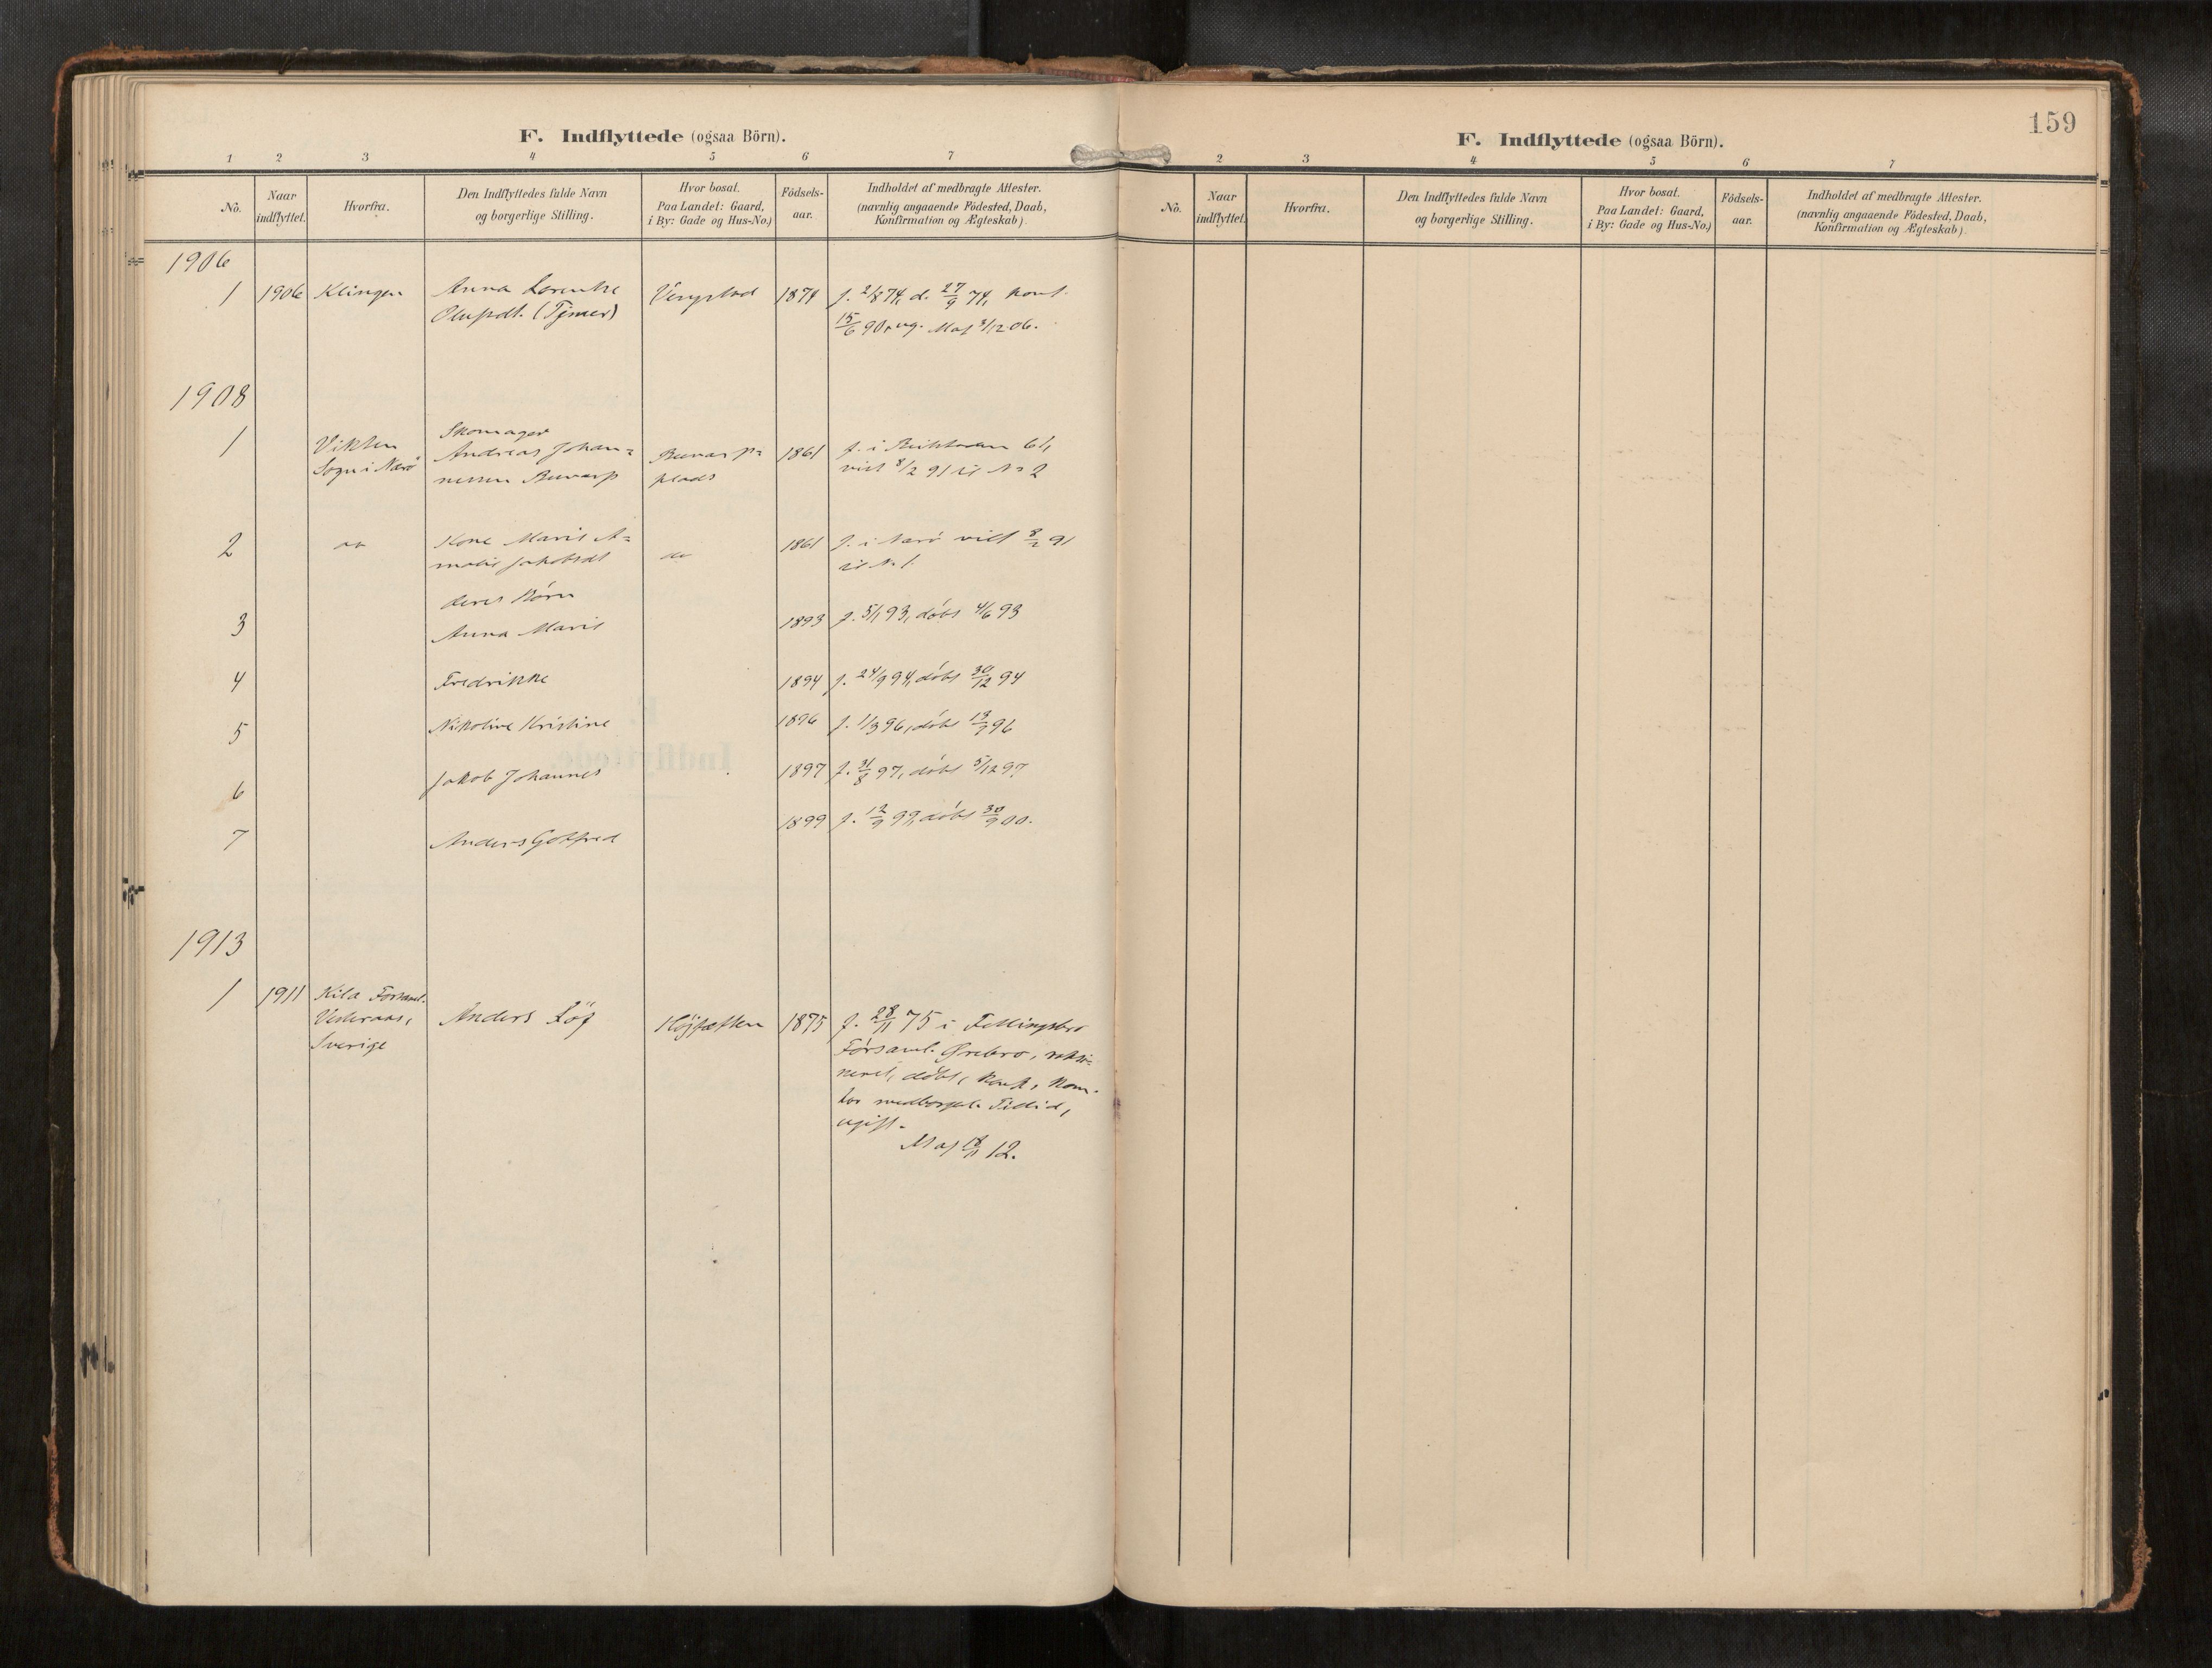 F. Indflyttede (ogsaa Börn).
1 2 3 4 5 6 7
No. Naar indflyttet. Hvorfra. Den Indflyttedes fulde Navn og borgerlige Stilling. Hvor bosat. Paa Landet: Gaard, i By: Gade og Hus-No.) Födsels-aar. Indholdet af medbragte Attester. (navnlig angaaende Födested, Daab, Konfirmation og Ægteskab).
1906
1 1906 Klingen Anna Lorentse 1874 f. 2/8 74, d. 27/9 74, konf.
Olufsdt. 15/6 90, ug. 3/12 06.
1908
Skomager
1 Vikten Andreas Johan= 1861 f. i 61,
Sogn i Nærö nessen plads viet 8/2 91 til No 2
2 do Kone Marie A= do 1861 f. i Nærö viet 8/2 91
malie Jakobsdt til No 1.
deres Börn
3 Anna Marie 1893 f. 5/1 93, döbt 4/6 93
4 Fredrikke 1894 f. 24/9 94, döbt 30/12 94
5 Nikoline Kristine 1896 f. 1/3 96, döbt 96
6 Jakob Johannes 1897 f. 31/8 97, döbt 5/12 97
7 Anders Gotfred 1899 f. 12/9 99, döbt 30/9 00.
1913
1 1911 Kila Forsaml. Anders Löf 1875 f. 28/11 75 i Fellingsbro
Vesteraas, Församl. Ørebro, vaksi=
Sverige neret, döbt, konf.,
medborgerl. Tillid,
ugift.
12.
159
F. Indflyttede (ogsaa Börn).
2 3 4 5 6 7
No. Naar indflyttet. Hvorfra. Den Indflyttedes fulde Navn og borgerlige Stilling. Hvor bosat. Paa Landet: Gaard, i By: Gade og Hus-No.) Födsels-aar. Indholdet af medbragte Attester. (navnlig angaaende Födested, Daab, Konfirmation og Ægteskab).